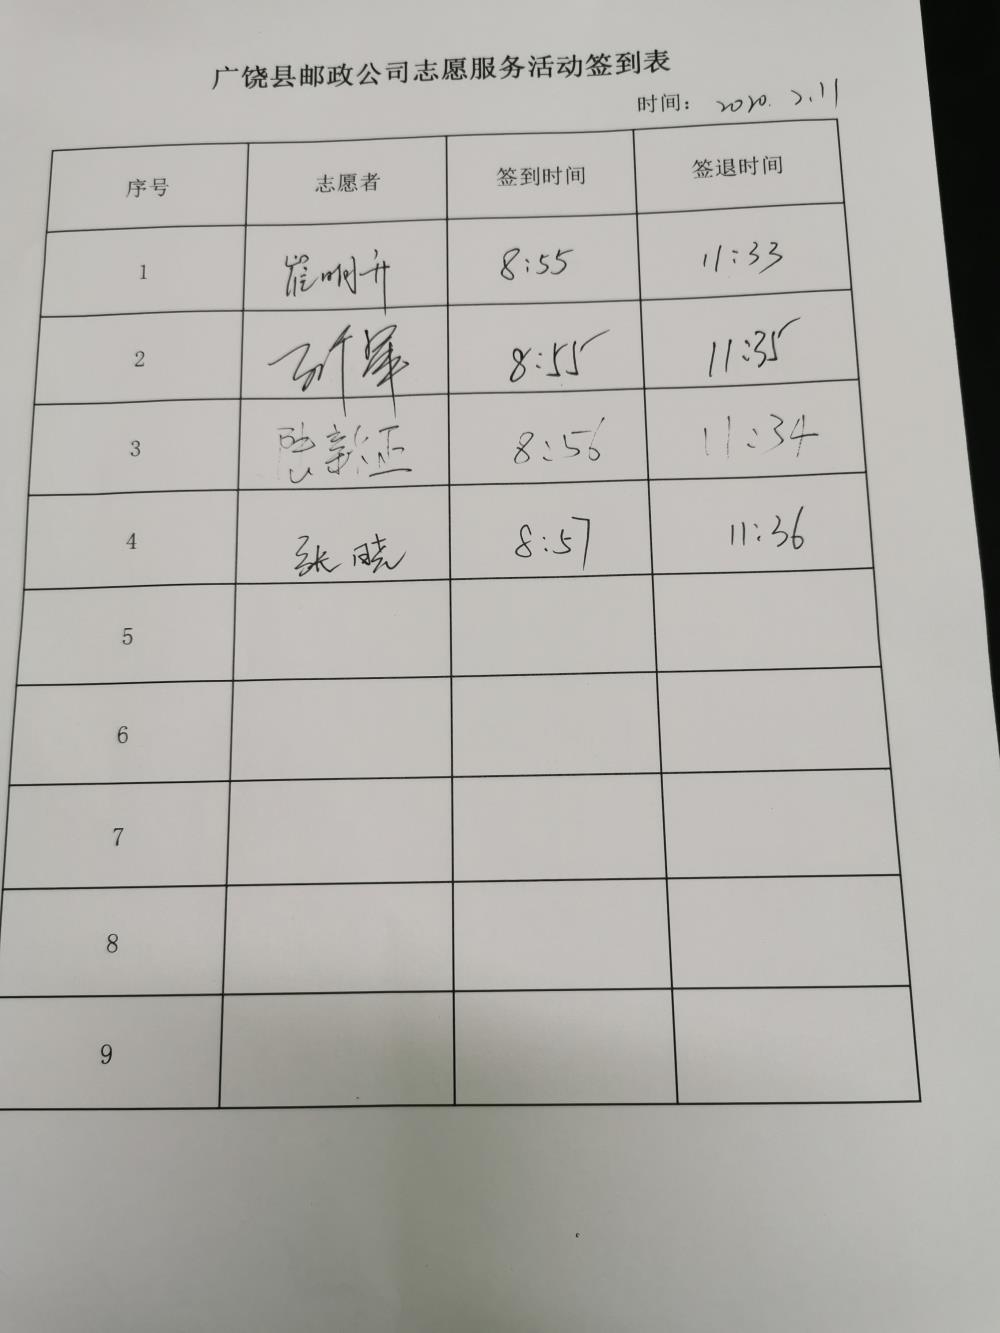 广饶县邮政公司志愿服务活动签到表
时间： 2020. 2.11
序号 志愿者 签到时间 签退时间
1 崔明升 8:55 11:33
2 8:55 11:35
3 陆新征 8:56 11:34
4 张晓 8:57 11:36
5
6
7
8
9